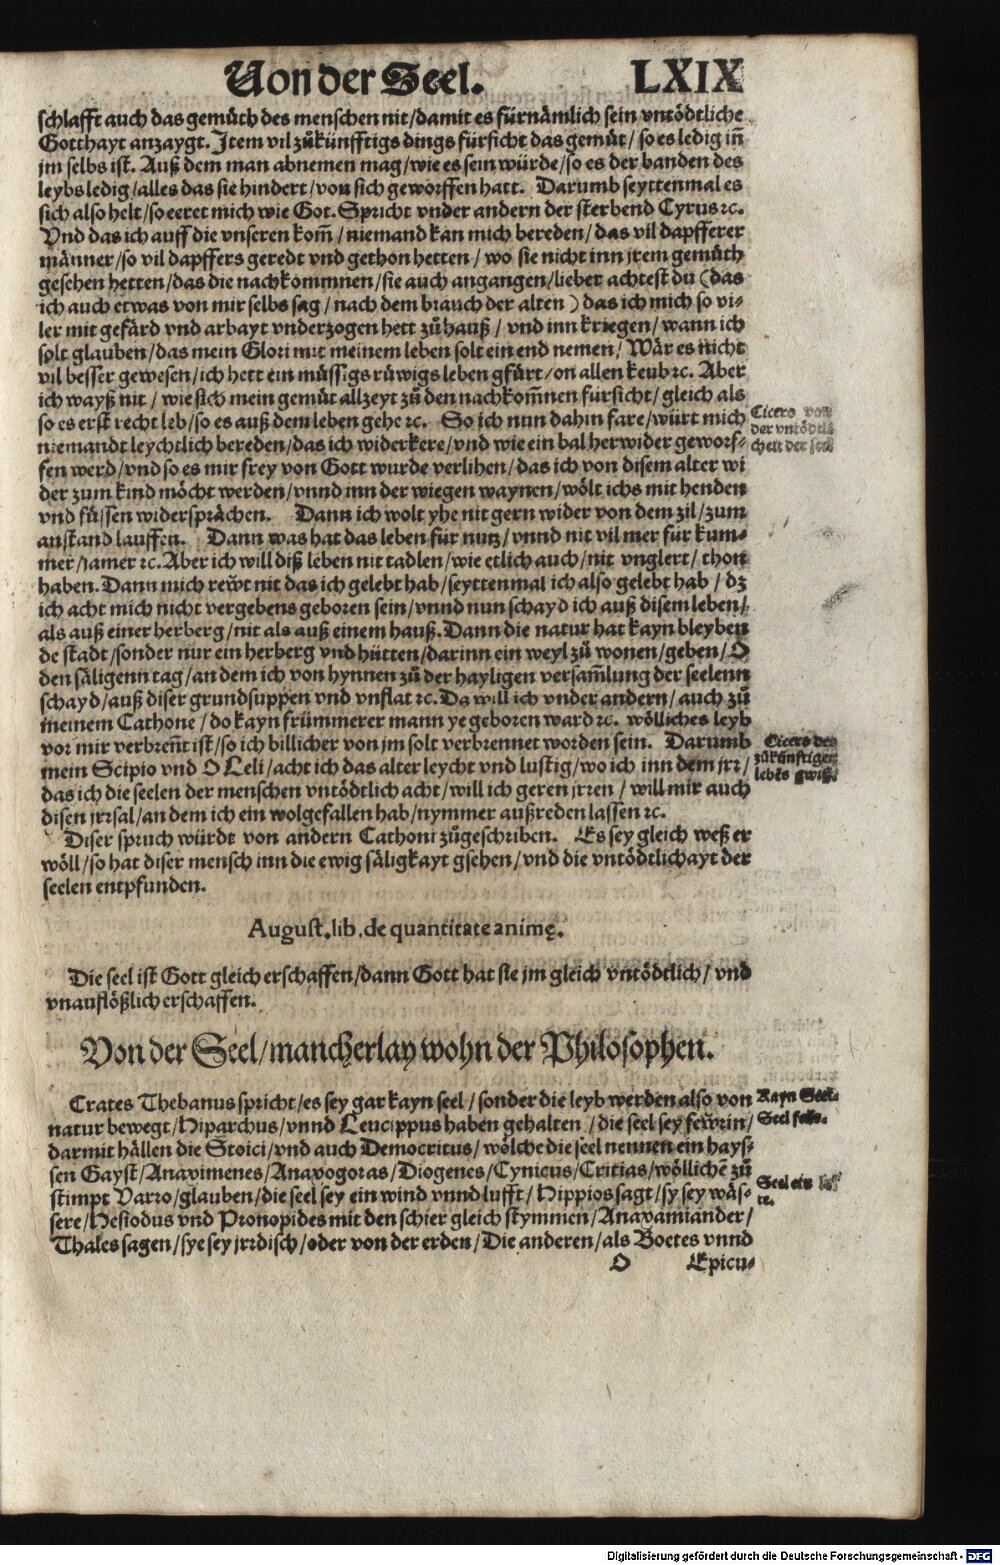 Von der Seel. LXIX
schlafft auch das gemüth des menschen nit/damit es fürnämlich sein vntödtliche
Gotthayt anzaygt. Item vil zůkünfftigs dings fürsicht das gemüt/so es ledig iñ
jm selbs ist. Auß dem man abnemen mag/wie es sein würde/so es der banden des
leybs ledig/alles das sie hindert/von sich geworffen hatt. Darumb seyttenmal es
sich also helt/so eeret mich wie Got. Spricht vnder andern der sterbend Cyrus ꝛc.
Vnd das ich auff die vnseren kom̃/niemand kan mich bereden/das vil dapfferer
männer/so vil dapffers geredt vnd gethon hetten/wo sie nicht inn jrem gemüth
gesehen hetten/das die nachkommnen/sie auch angangen/lieber achtest du (das
ich auch etwas von mir selbs sag/nach dem brauch der alten) das ich mich so vi-
ler mit gefärd vnd arbayt vnderzogen hett zů hauß/vnd inn kriegen/wann ich
solt glauben/das mein Glori mit meinem leben solt ein end nemen/Wär es nicht
vil besser gewesen/ich hett ein müssigs rüwigs leben gfürt/on allen keub ꝛc. Aber
ich wayß nit/wie sich mein gemüt allzeyt zů den nachkom̃nen fürsicht/gleich als
so es erst recht leb/so es auß dem leben gehe ꝛc. So ich nun dahin fare/würt mich
niemandt leychtlich bereden/das ich widerkere/vnd wie ein bal herwider geworf-
fen werd/vnd so es mir frey von Gott wurde verlihen/das ich von disem alter wi
der zum kind möcht werden/vnnd inn der wiegen waynen/wölt ichs mit henden
vnd füssen widersprächen. Dann ich wolt yhe nit gern wider von dem zil/zum
anstand lauffen. Dann was hat das leben für nutz/vnnd nit vil mer für kum-
mer/jamer ꝛc. Aber ich will diß leben nit tadlen/wie etlich auch/nit vnglert/thon
haben. Dann mich rewt nit das ich gelebt hab/seyttenmal ich also gelebt hab/dz
ich acht mich nicht vergebens geboren sein/vnnd nun schayd ich auß disem leben/
als auß einer herberg/nit als auß einem hauß. Dann die natur hat kayn bleyben
de stadt/sonder nur ein herberg vnd hütten/darinn ein weyl zů wonen/geben/O
den säligenn tag/an dem ich von hynnen zů der hayligen versam̃lung der seelenn
schayd/auß diser grundsuppen vnd vnflat ꝛc. Da will ich vnder andern/auch zů
meinem Cathone/do kayn frümmerer mann ye geboren ward ꝛc. wölliches leyb
vor mir verbreñt ist/so ich billicher von jm solt verbrennet worden sein. Darumb
mein Scipio vnd O Leli/acht ich das alter leycht vnd lustig/wo ich inn dem jrr/
das ich die seelen der menschen vntödtlich acht/will ich geren jrren/will mir auch
disen jrrsal/an dem ich ein wolgefallen hab/nymmer außreden lassen ꝛc.
Diser spruch würdt von andern Cathoni zůgeschriben. Es sey gleich weß er
wöll/so hat diser mensch inn die ewig säligkayt gsehen/vnd die vntödtlichayt der
seelen entpfunden.
Cicero von
der vntödtli
cheit der seel
Cicero des
zůkünftigen
lebēs gwiß.
August. lib. de quantitate animę.
Die seel ist Gott gleich erschaffen/dann Gott hat sie jm gleich vntödtlich/vnd
vnauflößlich erschaffen.
Von der Seel/mancherlay wohn der Philosophen.
Crates Thebanus spricht/es sey gar kayn seel/sonder die leyb werden also von
natur bewegt/Hiparchus/vnnd Leucippus haben gehalten/die seel sey fewrin/
darmit hällen die Stoici/vnd auch Democritus/wölche die seel nennen ein hays-
sen Gayst/Anaximenes/Anaxogoras/Diogenes/Cynicus/Critias/wöllichē zů
stimpt Varro/glauben/die seel sey ein wind vnnd lufft/Hippios sagt/sy sey wäs-
sere/Hesiodus vnd Pronopides mit den schier gleich stymmen/Anaxamiander/
Thales sagen/sye sey jrrdisch/oder von der erden/Die anderen/als Boetes vnnd
Kayn Seel.
Seel
Seel ein
O Epicu-
Digitalisierung gefördert durch die Deutsche Forschungsgemeinschaft - DFG